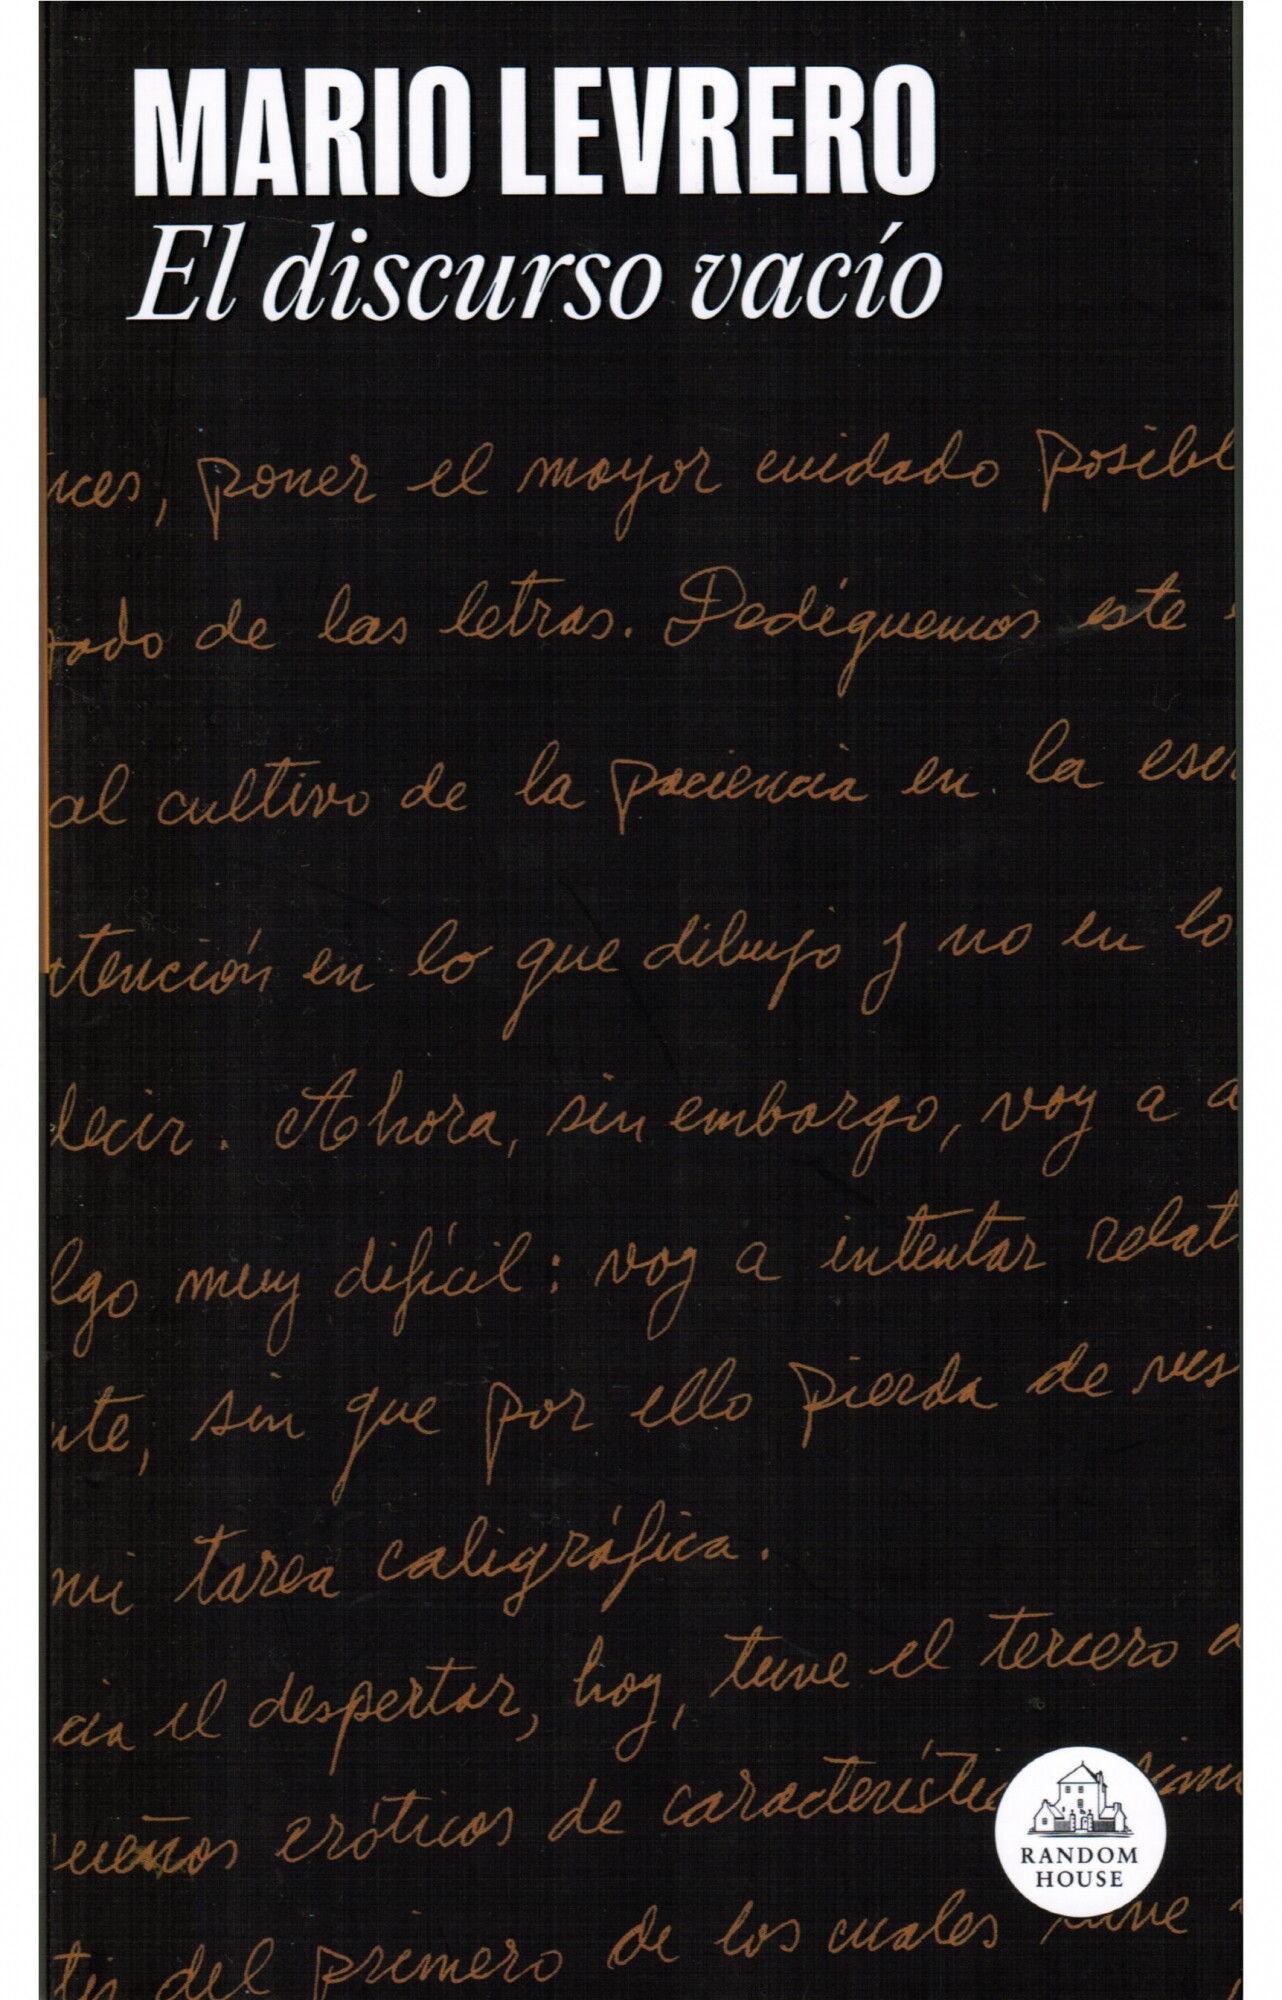 MARIO LEVRERO
El discurso vacío
nces, poner el mayor cuidado posibl
rado de las letras. Dediquemos este
al cultivo de la paciencia en la escr
tención en lo que dibujo y no en lo
decir. Ahora, sin embargo, voy a a
lgo muy difícil: voy a intentar relat
nte, sin que por ello pierda de vis
mi tarea caligráfica.
cia el despertar, hoy, tuve el tercero d
sueños eróticos de característic simi
tir del primero de los cuales tuve
RANDOM
HOUSE